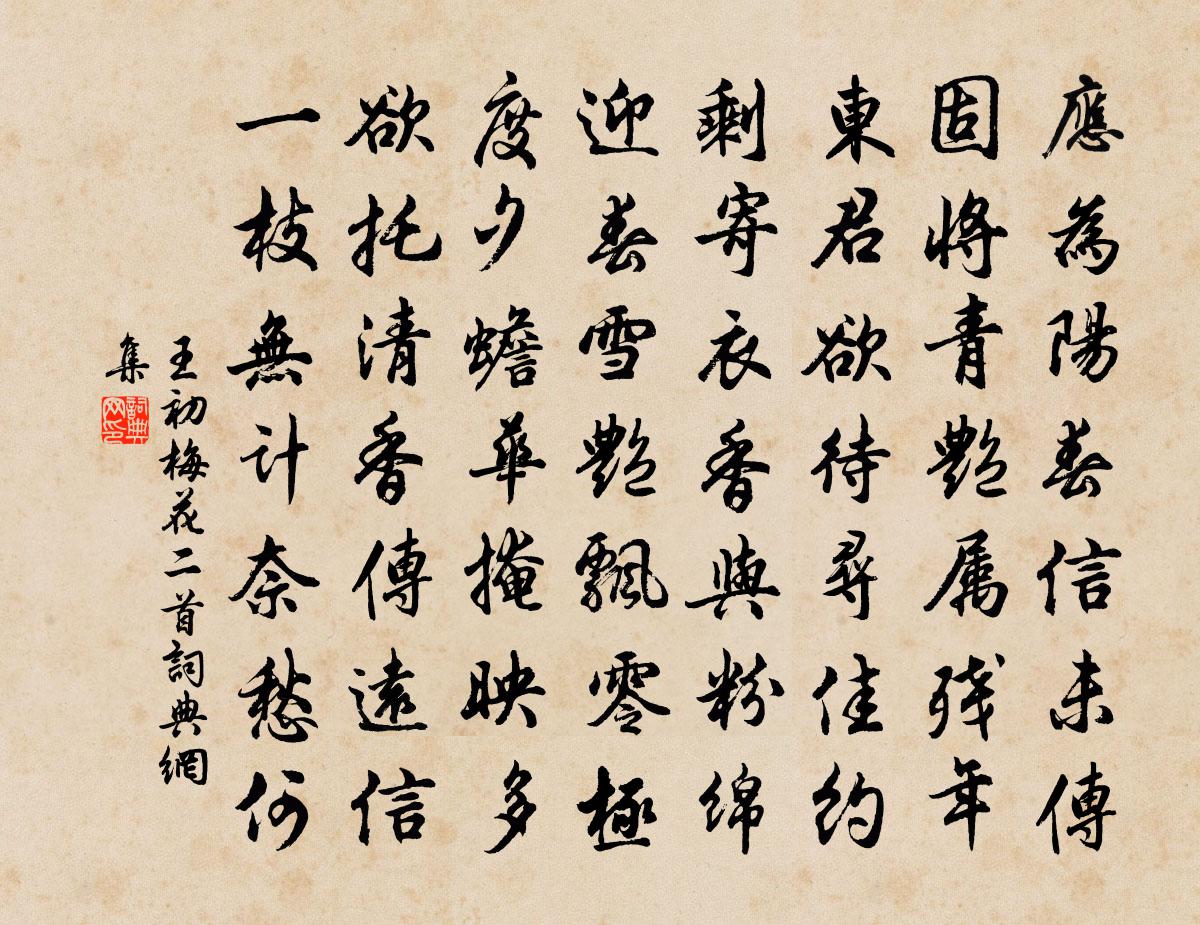 應為陽春信未傳
固將青艷屬残年
東君欲待尋佳約
剩寄衣香與粉綿
迎春雪艷飄零極
度夕蟾華掩映多
欲托清香傳遠信
一枝無計奈愁何
王初梅花二首詞典網
集
詞典
网印